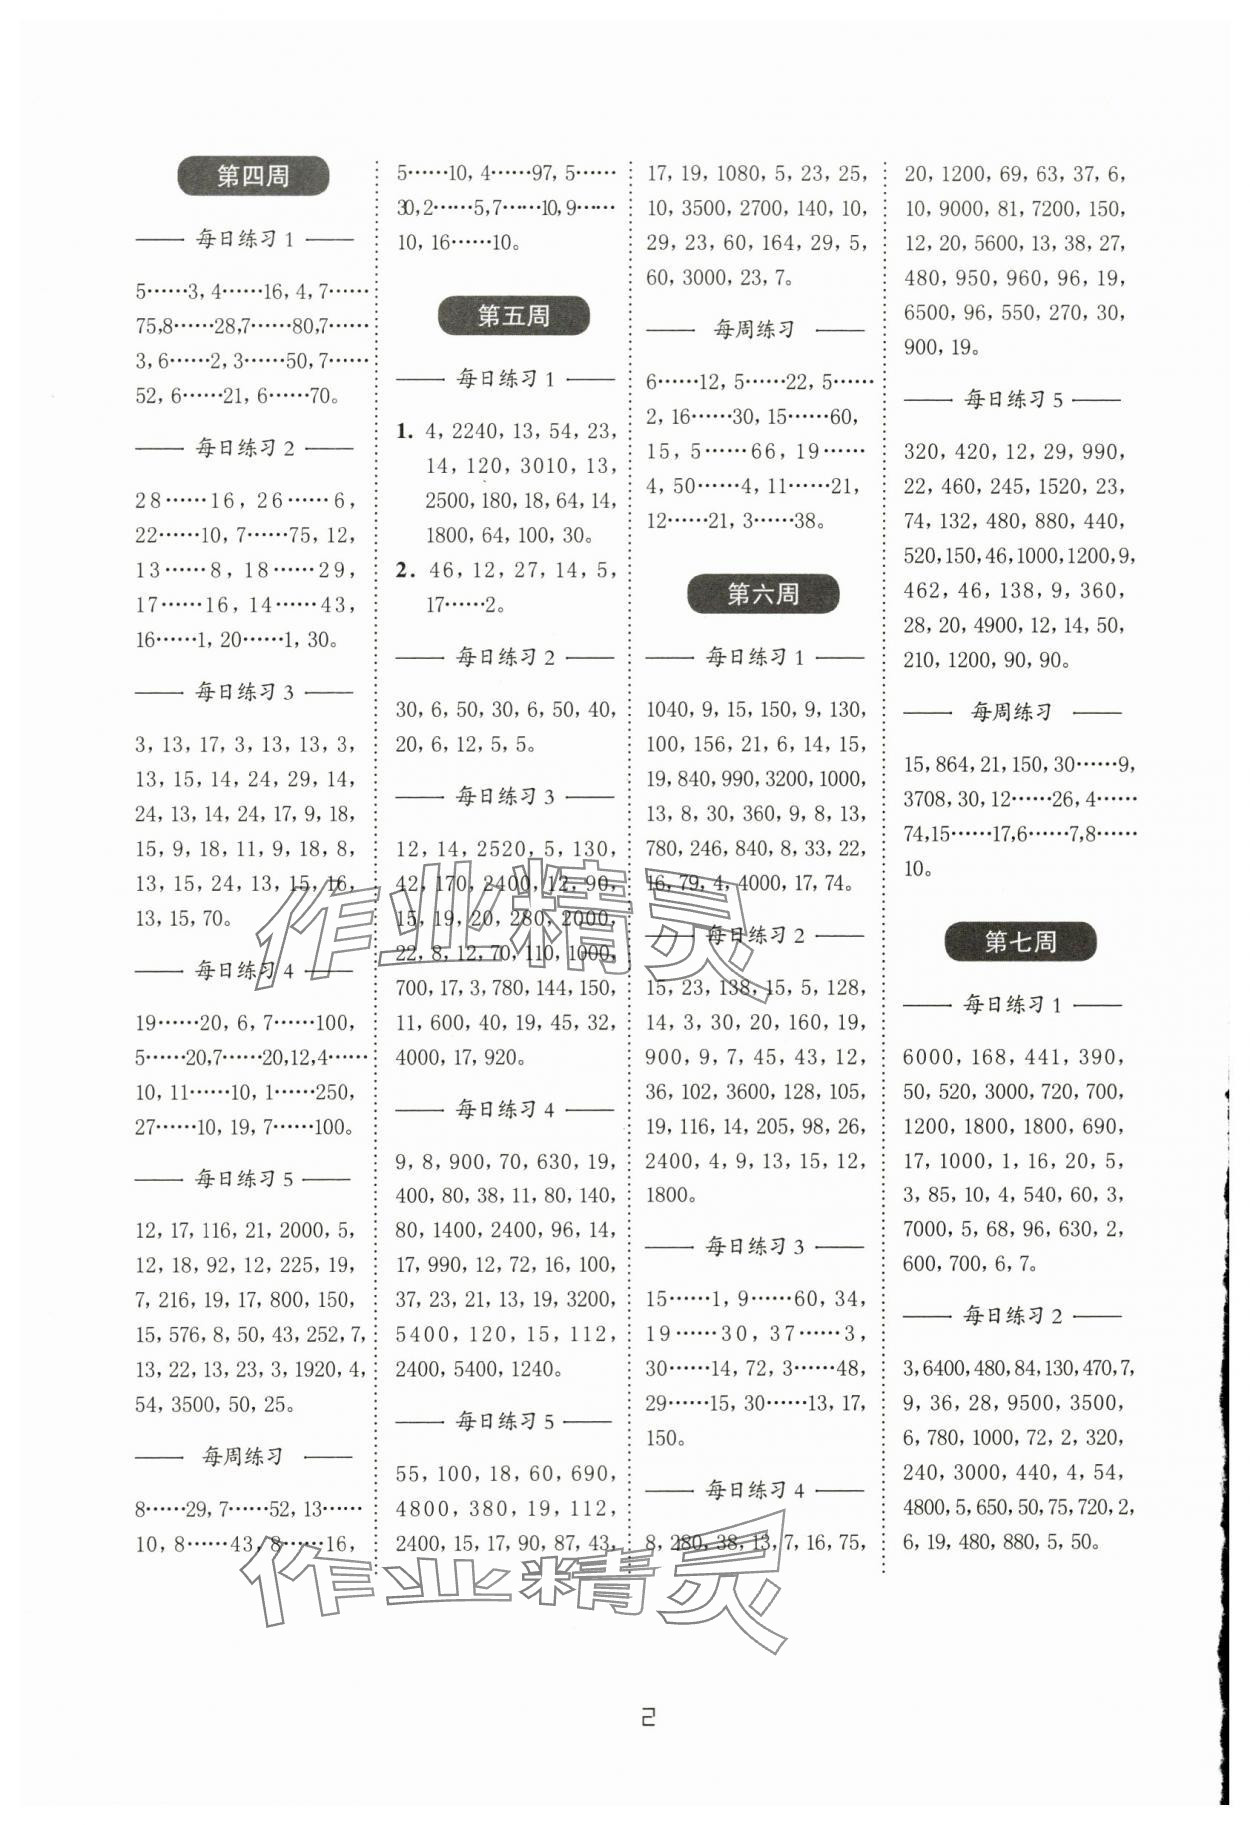 第四周
每日练习 1
5……3, 4……16, 4, 7……
75,8……28,7……80,7……
3, 6……2, 3……50, 7……
52, 6……21, 6……70。
每日练习 2
28……16, 26……6,
22……10, 7……75, 12,
13……8, 18……29,
17……16, 14……43,
16……1, 20……1, 30。
每日练习 3
3, 13, 17, 3, 13, 13, 3,
13, 15, 14, 24, 29, 14,
24, 13, 14, 24, 17, 9, 18,
15, 9, 18, 11, 9, 18, 8,
13, 15, 24, 13, 15, 16,
13, 15, 70。
每日练习 4
19……20, 6, 7……100,
5……20,7……20,12,4……
10, 11……10, 1……250,
27……10, 19, 7……100。
每日练习 5
12, 17, 116, 21, 2000, 5,
12, 18, 92, 12, 225, 19,
7, 216, 19, 17, 800, 150,
15, 576, 8, 50, 43, 252, 7,
13, 22, 13, 23, 3, 1920, 4,
54, 3500, 50, 25。
每周练习
8……29, 7……52, 13……
10, 8……43, 8……16,
5……10, 4……97, 5……
30,2……5,7……10,9……
10, 16……10。
第五周
每日练习 1
1. 4, 2240, 13, 54, 23,
14, 120, 3010, 13,
2500, 180, 18, 64, 14,
1800, 64, 100, 30。
2. 46, 12, 27, 14, 5,
17……2。
每日练习 2
30, 6, 50, 30, 6, 50, 40,
20, 6, 12, 5, 5。
每日练习 3
12, 14, 2520, 5, 130,
42, 170, 2400, 12, 90,
15, 19, 20, 280, 2000,
22, 8, 12, 70, 110, 1000,
700, 17, 3, 780, 144, 150,
11, 600, 40, 19, 45, 32,
4000, 17, 920。
每日练习 4
9, 8, 900, 70, 630, 19,
400, 80, 38, 11, 80, 140,
80, 1400, 2400, 96, 14,
17, 990, 12, 72, 16, 100,
37, 23, 21, 13, 19, 3200,
5400, 120, 15, 112,
2400, 5400, 1240。
每日练习 5
55, 100, 18, 60, 690,
4800, 380, 19, 112,
2400, 15, 17, 90, 87, 43,
17, 19, 1080, 5, 23, 25,
10, 3500, 2700, 140, 10,
29, 23, 60, 164, 29, 5,
60, 3000, 23, 7。
每周练习
6……12, 5……22, 5……
2, 16……30, 15……60,
15, 5……66, 19……
4, 50……4, 11……21,
12……21, 3……38。
第六周
每日练习 1
1040, 9, 15, 150, 9, 130,
100, 156, 21, 6, 14, 15,
19, 840, 990, 3200, 1000,
13, 8, 30, 360, 9, 8, 13,
780, 246, 840, 8, 33, 22,
16, 79, 4, 4000, 17, 74。
每日练习 2
15, 23, 138, 15, 5, 128,
14, 3, 30, 20, 160, 19,
900, 9, 7, 45, 43, 12,
36, 102, 3600, 128, 105,
19, 116, 14, 205, 98, 26,
2400, 4, 9, 13, 15, 12,
1800。
每日练习 3
15……1, 9……60, 34,
19……30, 37……3,
30……14, 72, 3……48,
29……15, 30……13, 17,
150。
每日练习 4
8, 280, 38, 13, 7, 16, 75,
20, 1200, 69, 63, 37, 6,
10, 9000, 81, 7200, 150,
12, 20, 5600, 13, 38, 27,
480, 950, 960, 96, 19,
6500, 96, 550, 270, 30,
900, 19。
每日练习 5
320, 420, 12, 29, 990,
22, 460, 245, 1520, 23,
74, 132, 480, 880, 440,
520,150,46,1000,1200,9,
462, 46, 138, 9, 360,
28, 20, 4900, 12, 14, 50,
210, 1200, 90, 90。
每周练习
15, 864, 21, 150, 30……9,
3708, 30, 12……26, 4……
74,15……17,6……7,8……
10。
第七周
每日练习 1
6000, 168, 441, 390,
50, 520, 3000, 720, 700,
1200, 1800, 1800, 690,
17, 1000, 1, 16, 20, 5,
3, 85, 10, 4, 540, 60, 3,
7000, 5, 68, 96, 630, 2,
600, 700, 6, 7。
每日练习 2
3,6400,480,84,130,470,7,
9, 36, 28, 9500, 3500,
6, 780, 1000, 72, 2, 320,
240, 3000, 440, 4, 54,
4800, 5, 650, 50, 75, 720, 2,
6, 19, 480, 880, 5, 50。
作业精灵
作业精灵
2